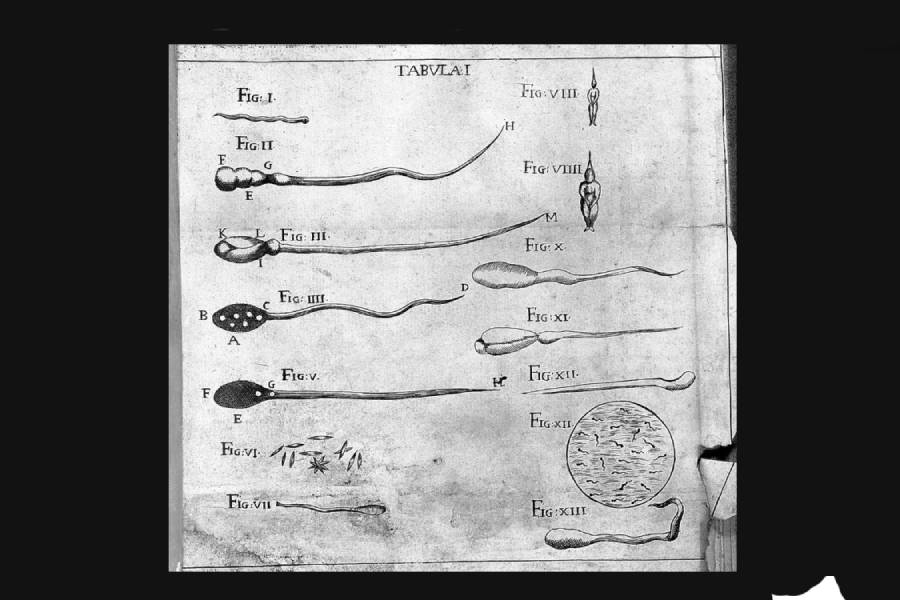 TABVLA I
FIG: I.
FIG: II
F
G
H
E
K
L
FIG: III.
M
I
FIG: IIII.
D
B
C
A
FIG: V.
F
G
H
E
FIG: VI.
FIG: VII
FIG: VIII
FIG: VIIII
FIG: X.
FIG: XI.
FIG: XII.
FIG: XII.
FIG: XIII